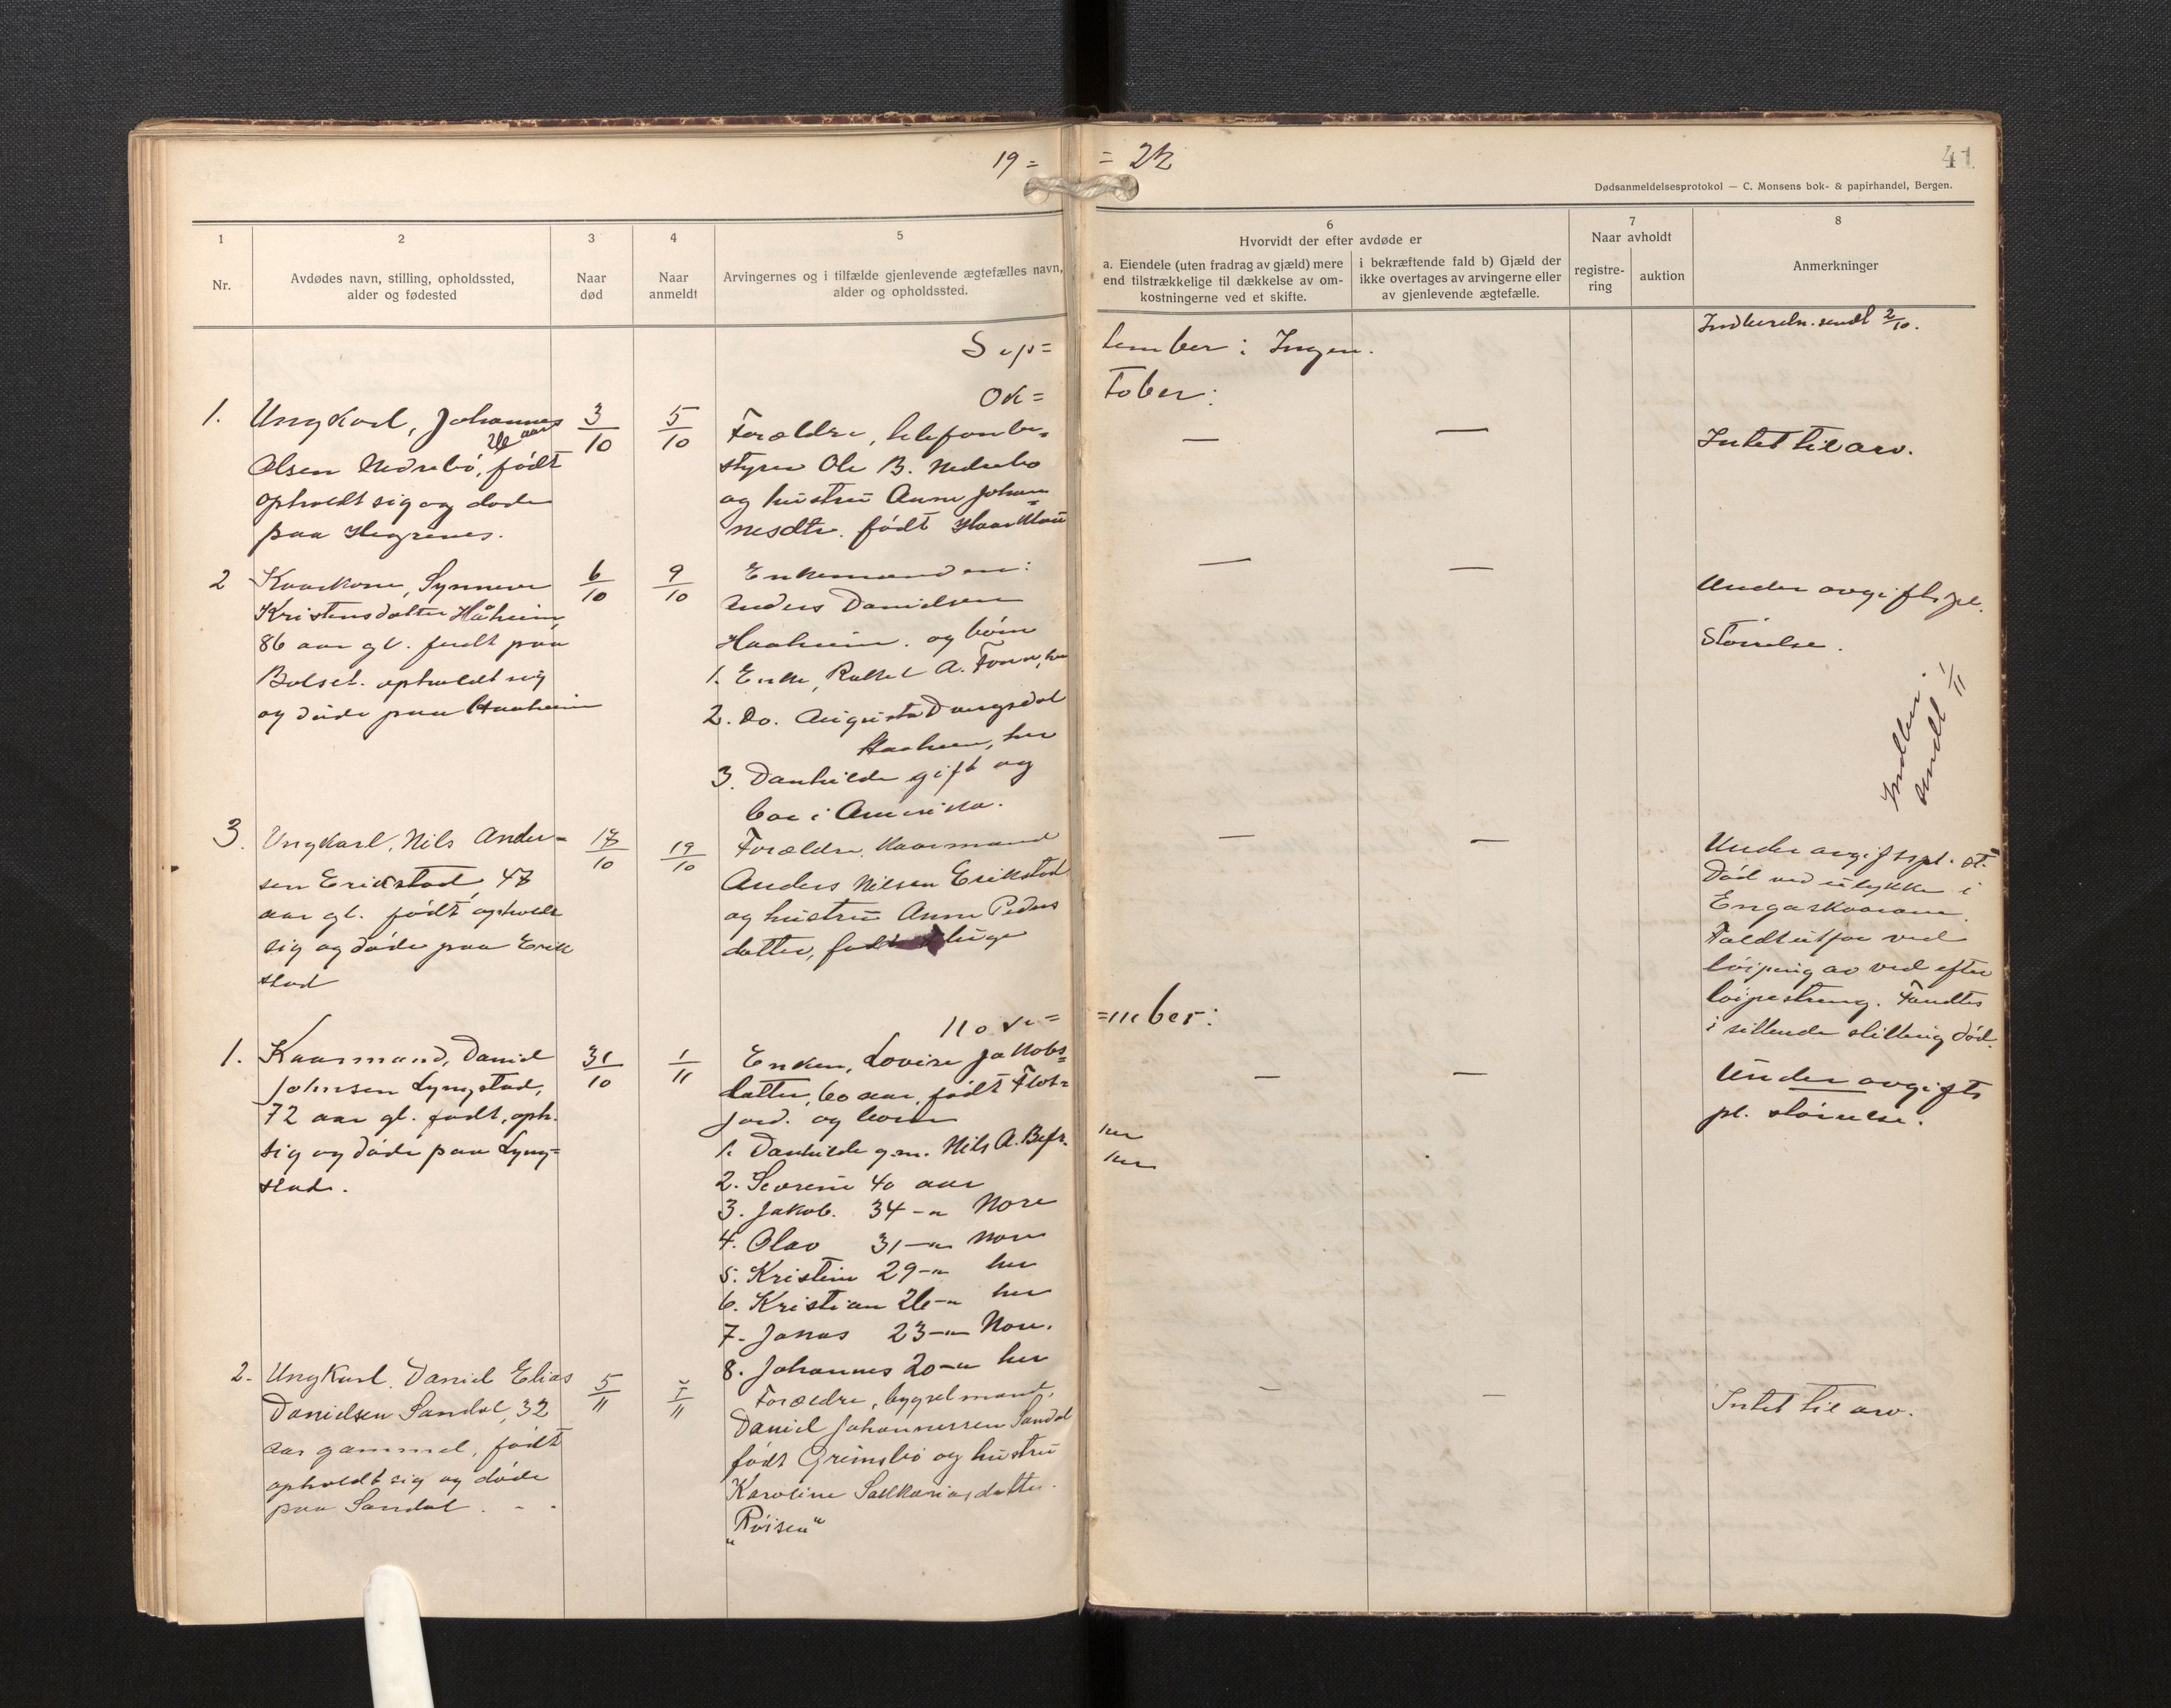 19 = = 22
41
Dødsanmeldelsesprotokol — C. Monsens bok- & papirhandel, Bergen.
1
2
3
4
5
6
7
8
Nr.
Avdødes navn, stilling, opholdssted,
alder og fødested
Naar
død
Naar
anmeldt
Arvingernes og i tilfælde gjenlevende ægtefælles navn,
alder og opholdssted.
Hvorvidt der efter avdøde er
a. Eiendele (uten fradrag av gjæld) mere
end tilstrækkelige til dækkelse av om-
kostningerne ved et skifte.
i bekræftende fald b) Gjæld der
ikke overtages av arvingerne eller
av gjenlevende ægtefælle.
Naar avholdt
registre-
ring
auktion
Anmerkninger
Sep= tember: Ingen.
sendt 2/10.
Ok= tober:
1.
Ungkarl, Johannes
26 aar
Olsen Nedrebó, født
opholdt sig og døde
paa Hegrenes.
3/10
5/10
Forældre, telefonbe=
styrer Ole B. Nedrebo
og hustru Anne Johan=
nesdtr. født
—
—
Intet til arv.
2
Kaarkone, Synneve
Kristensdatter Håheim
86 aar gl. født paa
Bolset. opholdt sig
og døde paa Haaheim
6/10
9/10
Enkemanden:
Anders Danielsen
Haaheim. og børn
1. Enke, Rakel A. Fonn, her
2. Do. Augusta Daugsdal
Haaheim, her
3. Danhilde gift og
bor i Amerika.
—
—
Under avgiftspl.
Størrelse.
Indber.
sendt 1/11
3.
Ungkarl, Nils Ander=
sen Erikstad, 47
aar gl. født opholdt
sig og døde paa Erik
stad
17/10
19/10
Forældre, Kaarmand
Anders Nilsen Erikstad
og hustru Anne Peders
datter, født
—
—
Under avgiftspl. st.
Død ved ulykke i
Engaskaarane.
Faldt utfor ved
løiping av ved efter
løipestreng. Fandtes
i sittende stilling død.
Nove= =mber:
1.
Kaarmand, Daniel
Johnsen Lyngstad,
72 aar gl. født, oph.
sig og døde paa Lyng=
stad.
31/10
1/11
Enken, Lovise Jakobs=
datter, 60 aar, født Flot=
jord. og børn
1. Danhilde g.m. Nils A. her
2. Severin 40 aar her
3. Jakob. 34 -"- Nore
4. Olav 31 -"- Nore
5. Kristine 29 -"- her
6. Kristian 26 -"- her
7. Jonas 23 -"- Nore.
8. Johannes 20 -"- her
—
—
Under avgifts
pl. størrelse.
2.
Ungkarl. Daniel Elias
Danielsen Sandal, 32
aar gammel, født
opholdt sig og døde
paa Sandal.
5/11
Forældre, bygselmand,
Daniel Johannessen Sandal
født Grimsbø og hustru
Karoline Sakkariasdatter.
"Røisen"
—
—
Intet til arv.